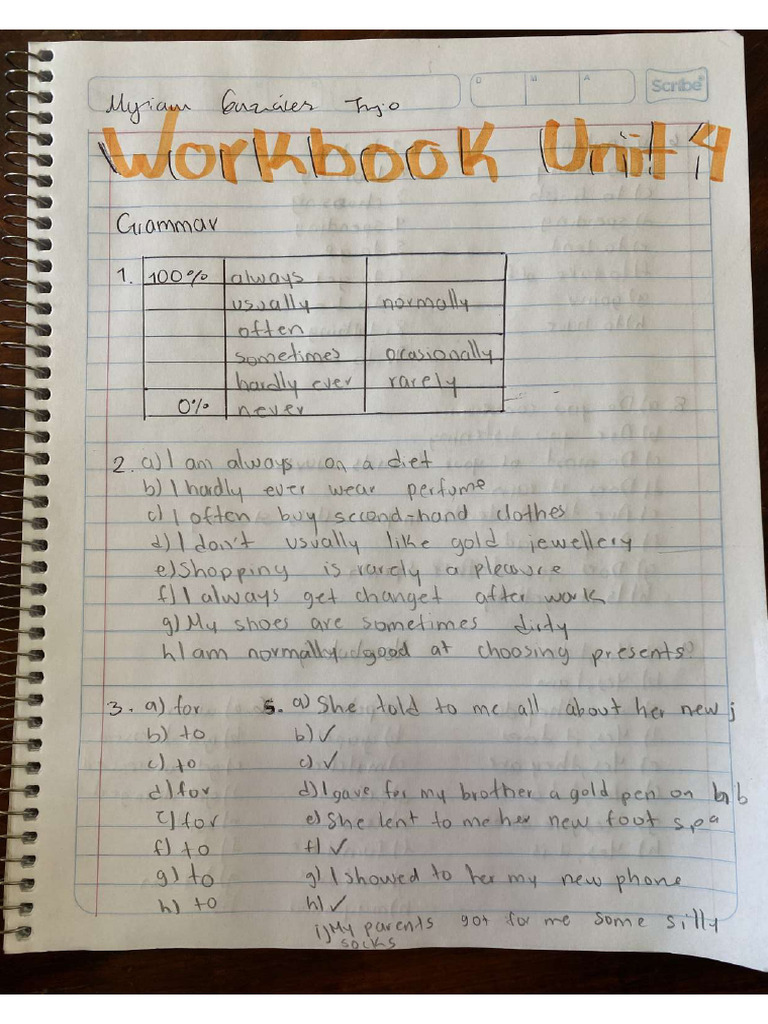 D M A
Scribe®
Myriam
Workbook Unit 4
Grammar
1. 100% always
usually normally
often
sometimes ocasionally
hardly ever rarely
0% never
2. a) I am always on a diet
b) I hardly ever wear perfume
c) I often buy second-hand clothes
d) I don't usually like gold jewellery
e) Shopping is rarely a pleasure
f) I always get changet after work
g) My shoes are sometimes dirty
h) I am normally good at choosing presents
3. a) for 5. a) She told to me all about her new j
b) to b) ✓
c) to c) ✓
d) for d) I gave for my brother a gold pen on b
e) for e) She lent to me her new foot spa
f) to f) ✓
g) to g) I showed to her my new phone
h) to h) ✓
i) My parents got for me some silly
socks